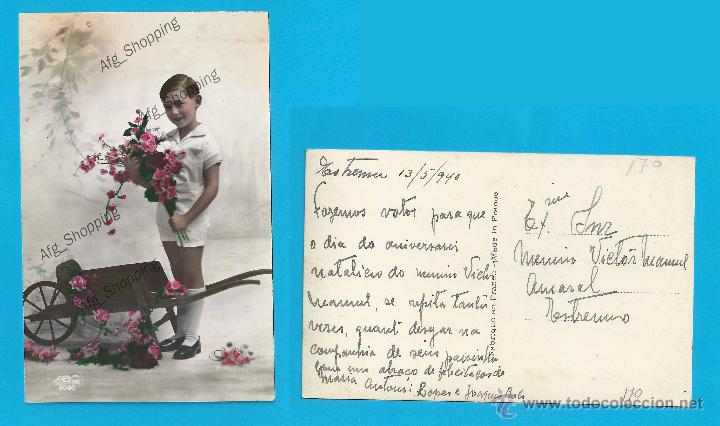 Afg_Shopping
Afg_Shopping
Afg_Shopping
Afg_Shopping
ABC
8046
Estremoz 13/5/940
Fazemos votos para que
o dia do aniversari
natalicio do menino Victor
Manuel, se repita tantas
vezes, quant desejar na
companhia de seus
Com um abraço de felicitações de
Maria Antoni Lopes e
Made in France
170
Ex. Snr
Menino Victor Manuel
Amaral
Estremoz
170
www.todocoleccion.net